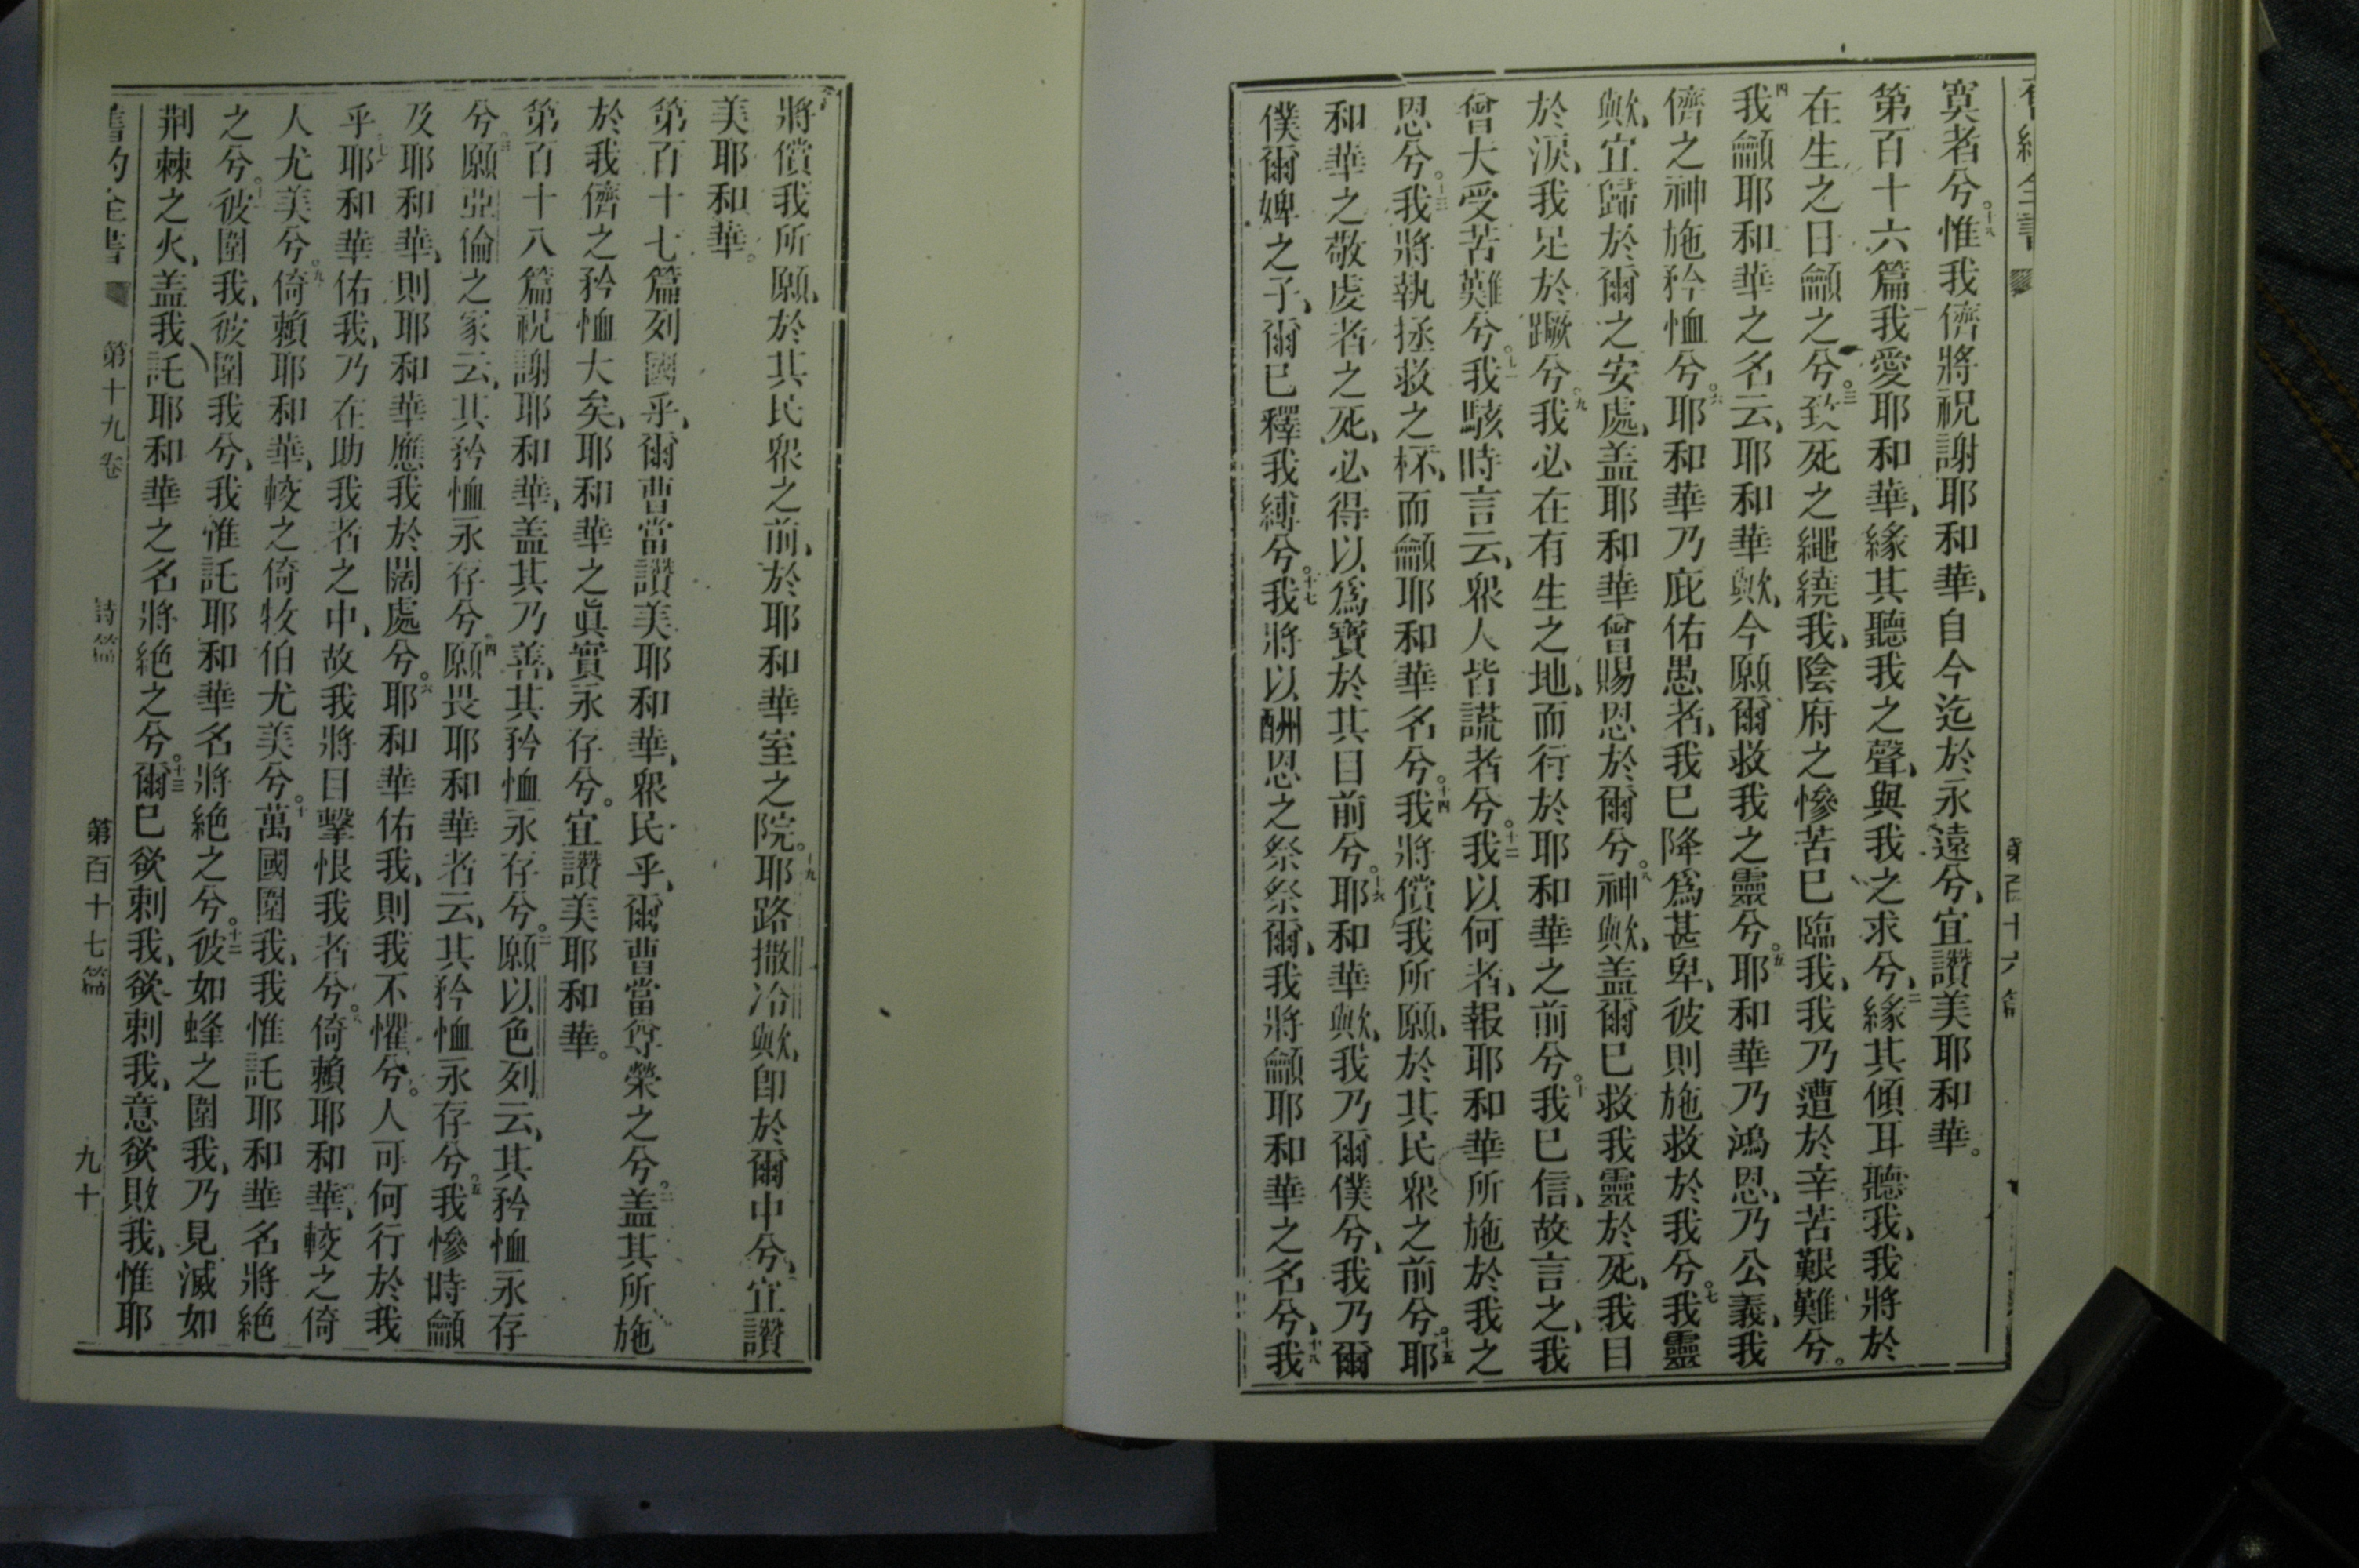 寞者兮。十八惟我儕將祝謝耶和華、自今迄於永遠兮、宜讚美耶和華。
第百十六篇一我愛耶和華、緣其聽我之聲、與我之求兮、二緣其傾耳聽我、我將於
在生之日龥之兮。三致死之繩繞我、陰府之慘苦已臨我、我乃遭於辛苦艱難兮。
四我龥耶和華之名云、耶和華歟、今願爾救我之靈兮。五耶和華乃鴻恩、乃公義、我
儕之神施矜恤兮。六耶和華乃庇佑愚者、我已降爲甚卑、彼則施救於我兮。七我靈
歟、宜歸於爾之安處、盖耶和華曾賜恩於爾兮。八神歟、盖爾已救我靈於死、我目
於淚、我足於蹶兮。九我必在有生之地、而行於耶和華之前兮。十我已信、故言之、我
曾大受苦難兮。十一我駭時言云、衆人皆謊者兮。十二我以何者、報耶和華所施於我之
恩兮。十三我將執拯救之杯、而龥耶和華名兮。十四我將償我所願、於其民衆之前兮。十五耶
和華之敬虔者之死、必得以爲寶於其目前兮。十六耶和華歟、我乃爾僕兮、我乃爾
僕爾婢之子、爾已釋我縛兮。十七我將以酬恩之祭祭爾、我將龥耶和華之名兮、十八我
第百十六篇
將償我所願、於其民衆之前、於耶和華室之院。十九耶路撒冷歟、卽於爾中兮、宜讚
美耶和華。
第百十七篇列國乎、爾曹當讚美耶和華、衆民乎、爾曹當尊榮之兮。二盖其所施
於我儕之矜恤大矣、耶和華之眞實永存兮。宜讚美耶和華。
第百十八篇祝謝耶和華、盖其乃善、其矜恤永存兮。二願以色列云、其矜恤永存
兮。三願亞倫之家云、其矜恤永存兮。四願畏耶和華者云、其矜恤永存兮。五我慘時龥
及耶和華、則耶和華應我於闊處兮。六耶和華佑我、則我不懼兮。人可何行於我
乎、七耶和華佑我、乃在助我者之中、故我將目擊恨我者兮。八倚賴耶和華、較之倚
人尤美兮。九倚賴耶和華、較之倚牧伯尤美兮。十萬國圍我、我惟託耶和華名將絕
之兮。十一彼圍我、彼圍我兮、我惟託耶和華名將絕之兮。十二彼如蜂之圍我、乃見滅如
荆棘之火、盖我託耶和華之名將絕之兮。十三爾已欲刺我、欲刺我、意欲敗我、惟耶
舊約全書 第十九卷 詩篇 第百十七篇 九十